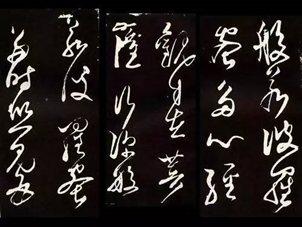 般若波羅
蜜多心經
觀自在菩
薩行深般
若波羅蜜
多時照見五